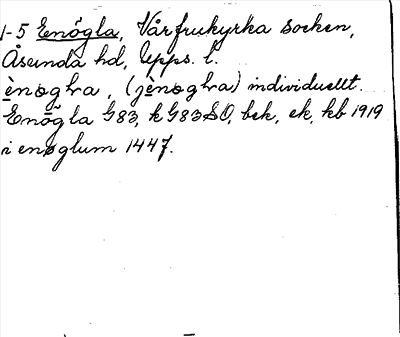 1-5 Enögla, Vårfrukyrka socken,
Åsunda hd, Upps. l.
ènøgla, (jènøgla) individuellt.
Enögla G83, kG83SO, bek, ek, kb 1919
i enøglum 1447.